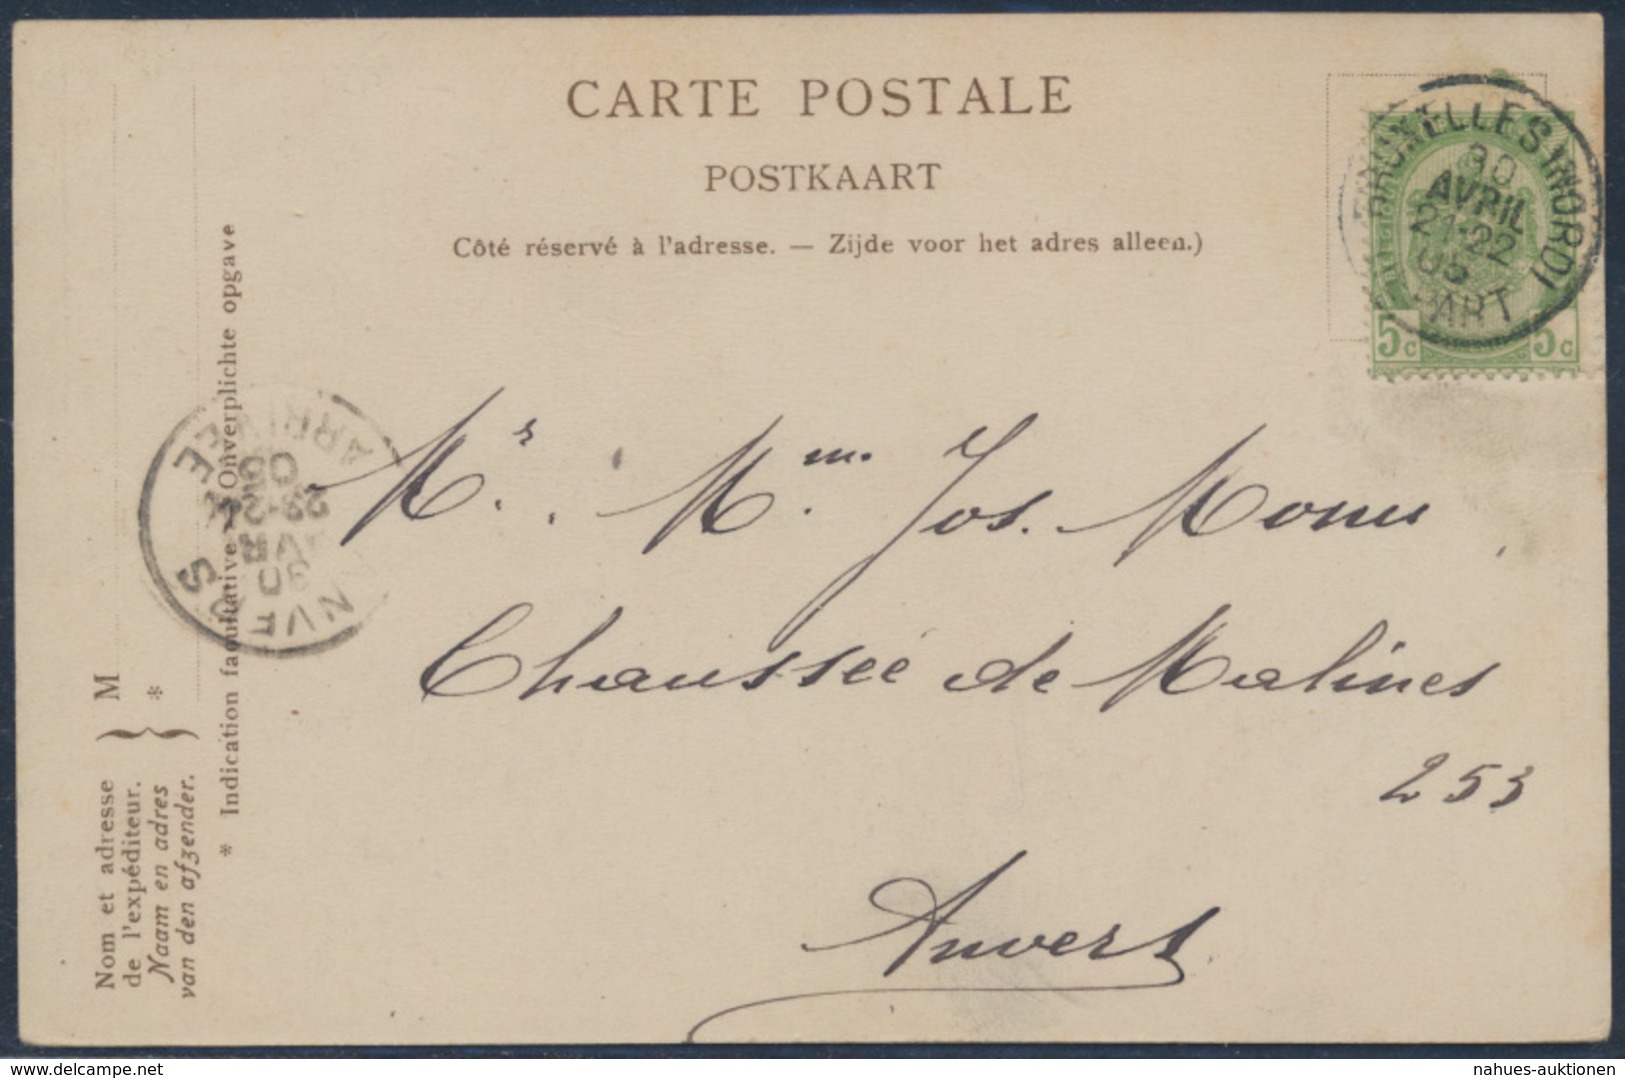 CARTE POSTALE
POSTKAART
Côté réservé à l'adresse. — Zijde voor het adres alleen.)
BRUXELLES (NORD)
30
AVRIL
21-22
05
5c 5c
ARRIVÉE
30
Mr. Mm. Jos. Monu
Chaussée de Malines
253
Anvers
M
*
Nom et adresse
de l'expéditeur.
Naam en adres
van den afzender.
* Indication facultative Onverplichte opgave
delcampe.net
nahues-auktionen